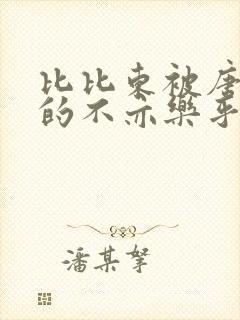 比比东被唐
的不亦樂乎
潘某拏